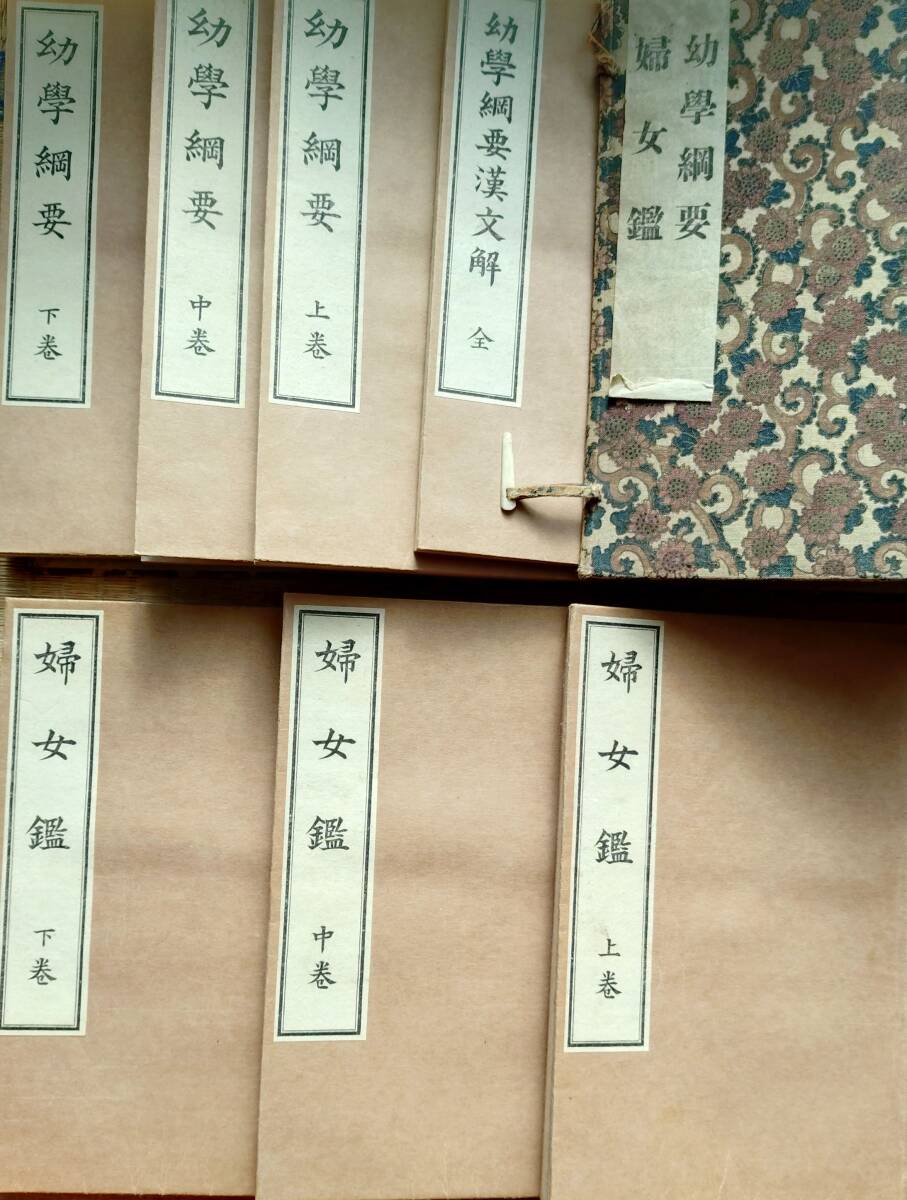 幼學綱要
婦女鑑
幼學綱要漢文解 全
幼學綱要 上卷
幼學綱要 中卷
幼學綱要 下卷
婦女鑑 上卷
婦女鑑 中卷
婦女鑑 下卷